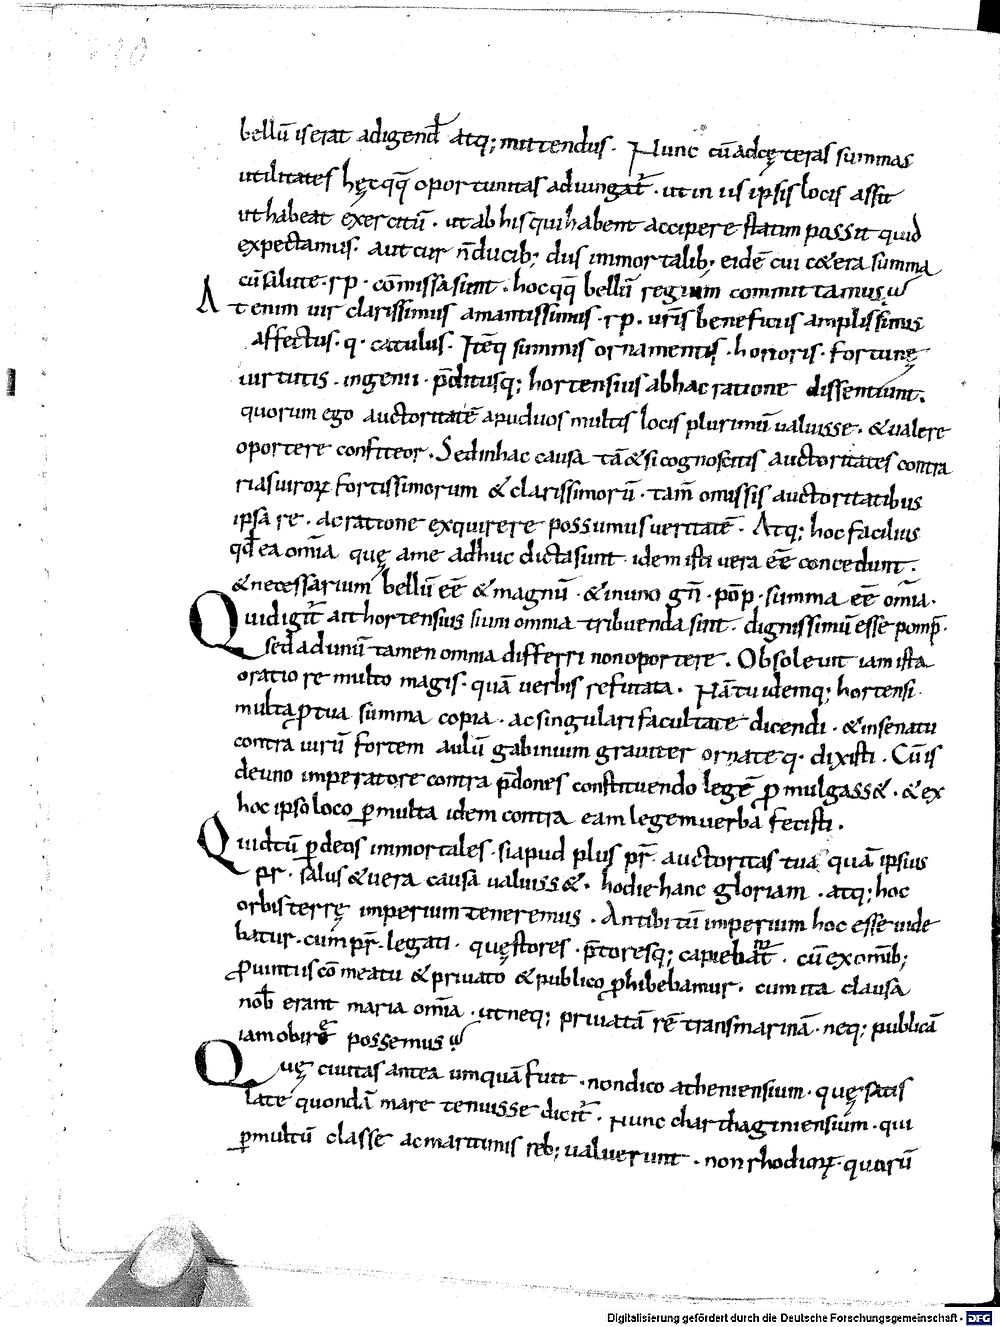 bellū is erat adigend̄ atq; mittendus · Nunc cū ad cęteras summas
utilitates hęc qq̄ oportunitas adiungat̄ · ut in iis ipsis locis assit
ut habeat exercitū · ut ab his qui habent accipere statim possit quid
expectamus · aut cur n̄ ducib; dıis immortalib; eidē cui c&era summa
cū salute · r p · cōmissa sunt · hoc qq̄ bellū regium committamus
At enim uir clarissimus amantissimus · r p · uris̄ beneficiis amplissimis
affectus · q · catulus · Itēq summis ornamentis · honoris · fortunę
uirtutis · ingenii · p̄ditusq; hortensius ab hac ratione dissentiunt ·
quorum ego auctoritatē apud uos multis locis plurimū ualuisse · & ualere
oportere confiteor · Sed in hac causa tā&si cognoscitis auctoritates contra
rias uiroꝝ fortissimorum & clarissimorū · tam̄ omissis auctoritatibus
ipsa re · ac ratione exquirere possumus ueritatē · Atq; hoc facilius
qd̄ ea om̄ia quę a me adhuc dicta sunt · idem isti uera eē concedunt ·
& necessarium bellū eē & magnū · & in uno gn̄ · pōp · summa eē om̄ia ·
Quid igit̄ ait hortensius si um omnia tribuenda sint · dignissimū esse pomp̄ ·
sed ad unū tamen omnia differri non oportere · Obsoleuit iam ista
oratio re multo magis · quā uerbis refutata · Nā tu idemq; hortensi ·
multa ꝑ tua summa copia · ac singulari facultate dicendi · & in senatu
contra uirū fortem aulū gabinium grauiter ornateq · dixisti · Cū is
de uno imperatore contra p̄dones constituendo legē ꝓmulgass& · & ex
hoc ipso loco ꝑmulta idem contra eam legem uerba fecisti ·
Quid tū ꝑ deos immortales · si apud plus pr̄ · auctoritas tua quā ipsius
pr̄ · salus & uera causa ualuiss& · hodie hanc gloriam · atq; hoc
orbis terrę imperium teneremus · An tibi tū imperium hoc esse uide
batur · cum pr̄ · legati · quęstores · p̄toresq; capiebāt · cū ex om̄ib;
ꝓuintiis cōmeatu & priuato & publico ꝓhibebamur · cum ita clausa
nob̄ erant maria om̄ia · ut neq; priuatā rē transmarinā · neq; publicā
iam obire possemus
Quę ciuitas antea umquā fuit · non dico atheniensium · quę satis
late quondā mare tenuisse dicit̄ · Nunc charthaginiensium · qui
ꝑmultū classe ac maritimis reb; ualuerunt · non rhodioꝝ · quorū
Digitalisierung gefördert durch die Deutsche Forschungsgemeinschaft - DFG